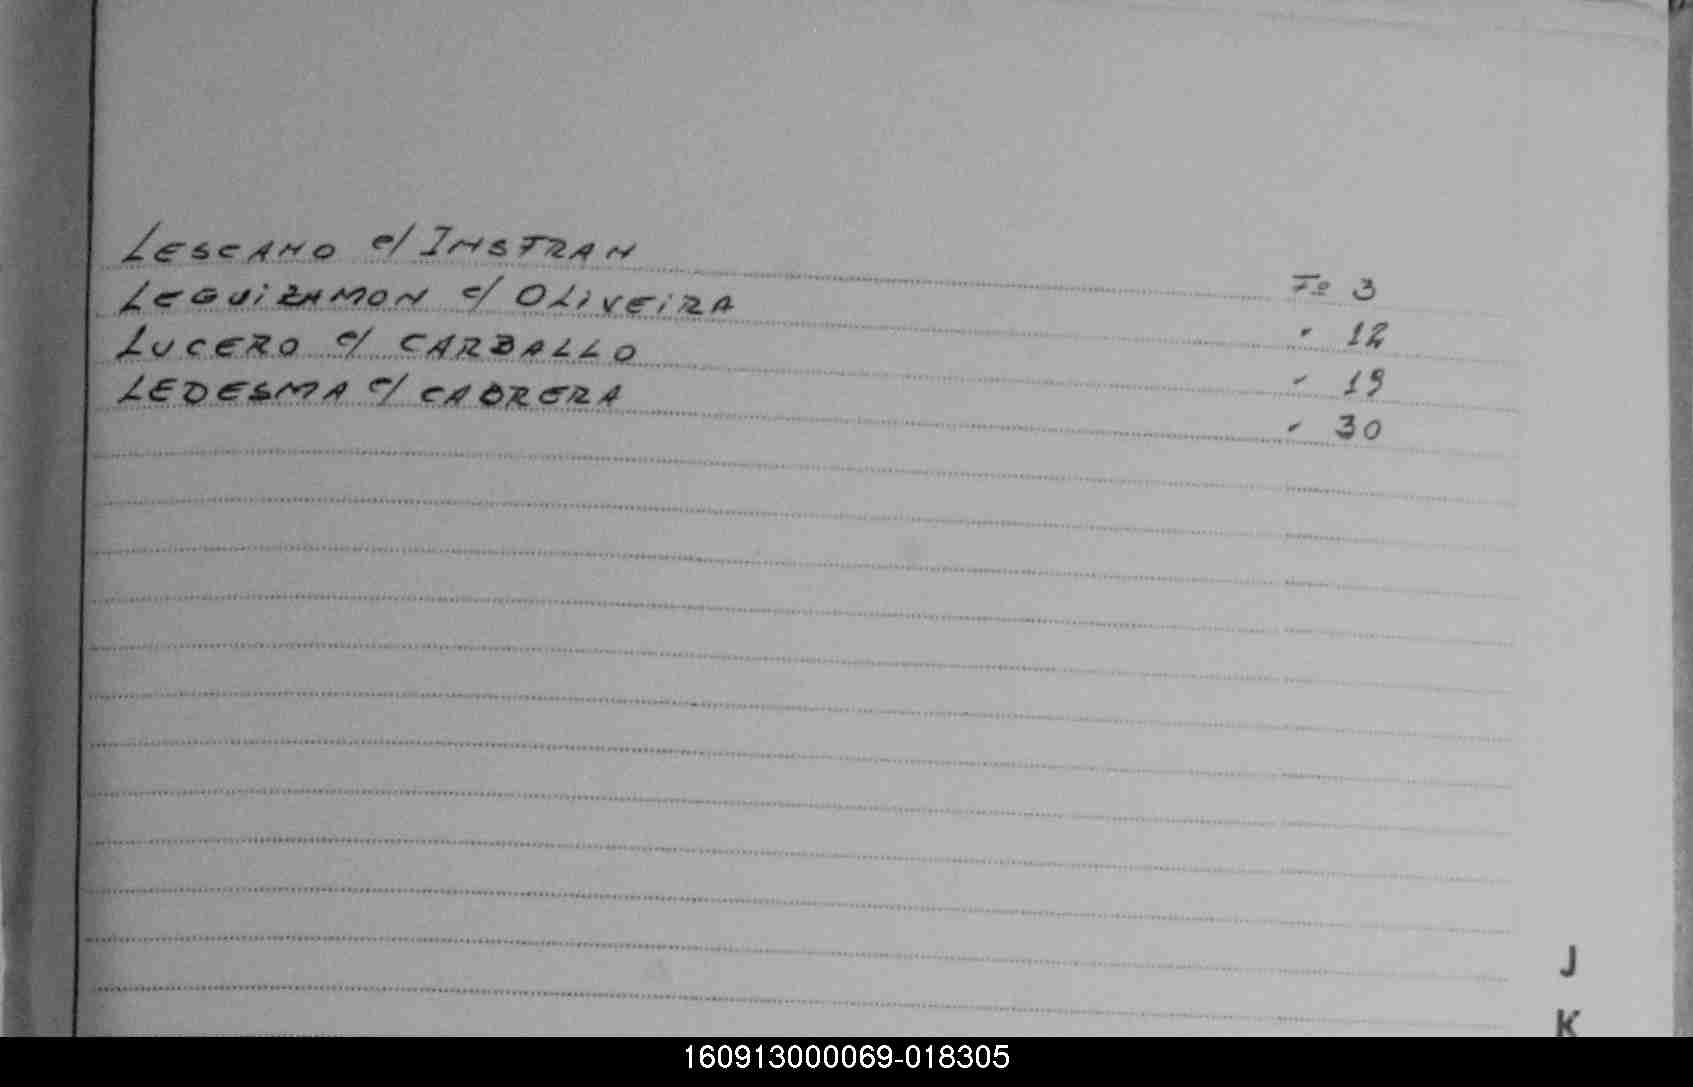 LESCANO c/ INSTRAN Fo 3
LEGUIZAMON c/ OLIVEIRA " 12
LUCERO c/ CARBALLO " 19
LEDESMA c/ CABRERA " 30
J
K
160913000069-018305